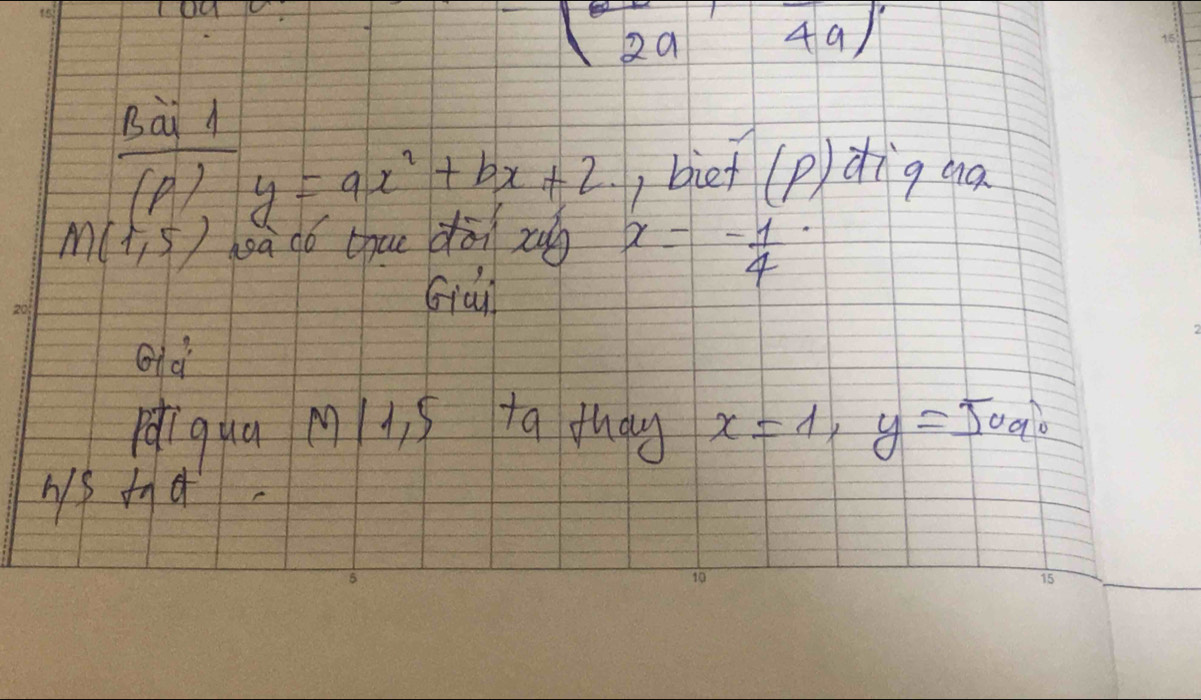 2a 4a)
Bài 1
(P) y = ax² + bx + 2. , biết (P) đi qua
M(1,5) và có trục đối xứng x = -1/4.
Giải
Giả
P đi qua M(1,5 ta thay x = 1, y = 5 vào
h/s ta đ
20
5 10 15